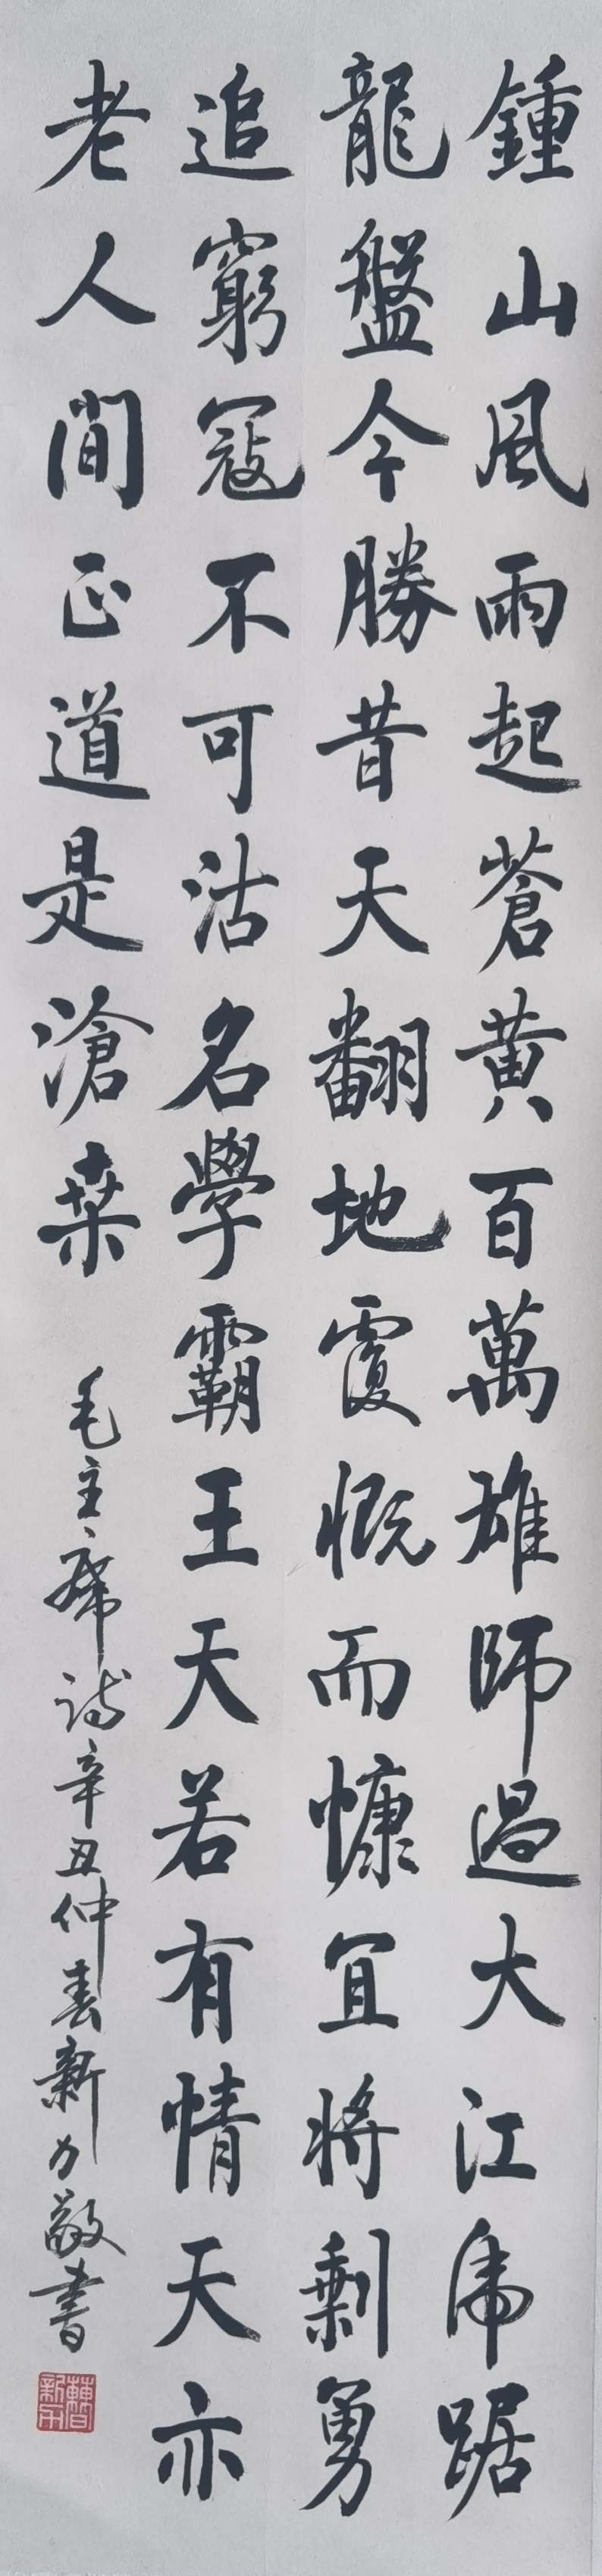 鍾山風雨起蒼黄百萬雄師過大江虎踞
龍盤今勝昔天翻地覆慨而慷宜將剩勇
追窮寇不可沽名學霸王天若有情天亦
老人間正道是滄桑
毛主席詩辛丑仲春新力敬書